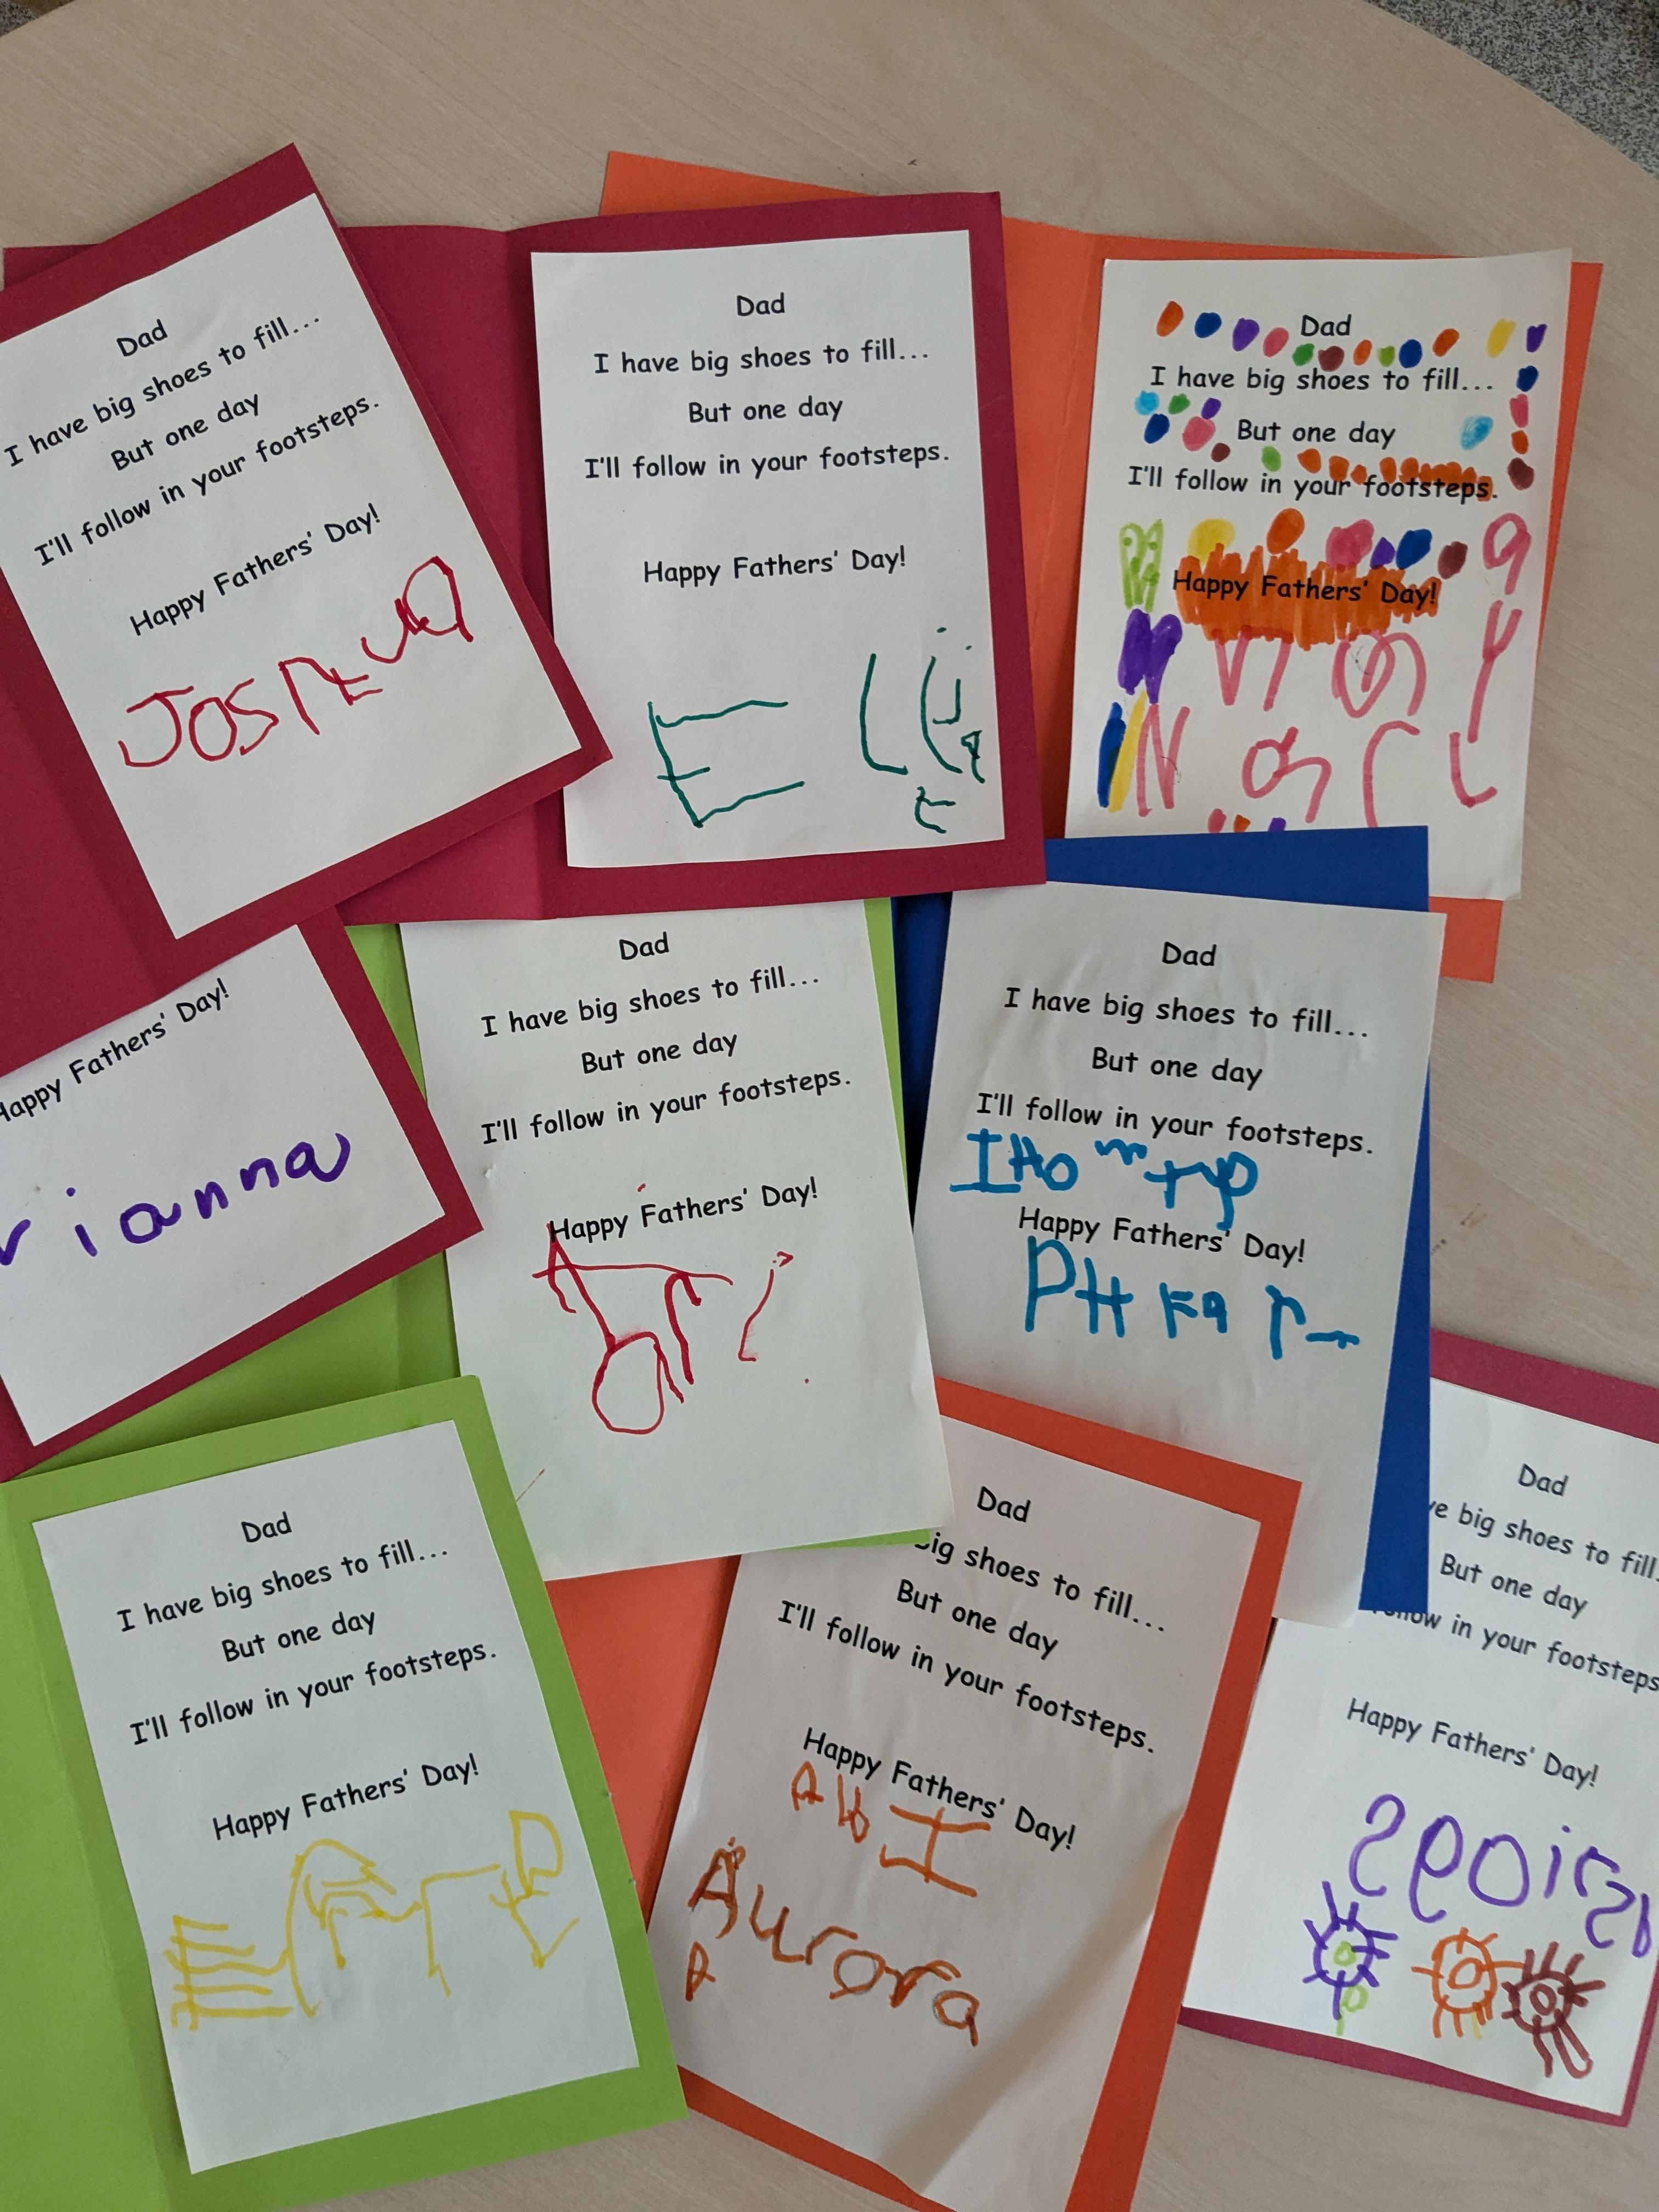 Dad
I have big shoes to fill...
But one day
I'll follow in your footsteps.
Happy Fathers' Day!
Dad
I have big shoes to fill...
But one day
I'll follow in your footsteps.
Happy Fathers' Day!
Dad
I have big shoes to fill...
But one day
I'll follow in your footsteps.
Happy Fathers' Day!
Happy Fathers' Day!
rianna
Dad
I have big shoes to fill...
But one day
I'll follow in your footsteps.
Happy Fathers' Day!
Dad
I have big shoes to fill...
But one day
I'll follow in your footsteps.
Happy Fathers' Day!
Dad
I have big shoes to fill...
But one day
I'll follow in your footsteps.
Happy Fathers' Day!
Dad
big shoes to fill...
But one day
I'll follow in your footsteps.
Happy Fathers' Day!
Aurora
Dad
big shoes to fill
But one day
in your footsteps
Happy Fathers' Day!